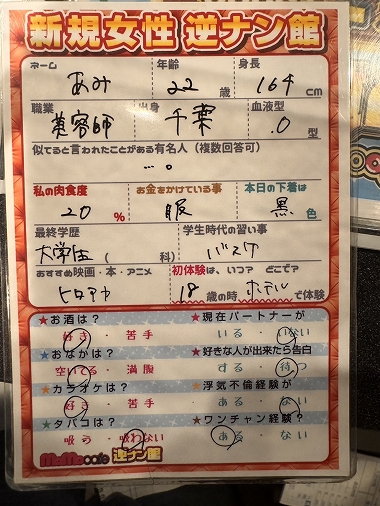 新規女性 逆ナン館
ネーム 年齢 身長
あみ 22歳 164cm
職業 出身 血液型
美容師 千葉 .O型
似てると言われたことがある有名人(複数回答可)
...。
私の肉食度 お金をかけている事 本日の下着は
20% 服 黒色
最終学歴 学生時代の習い事
大学生(科) バスケ
おすすめ映画・本・アニメ 初体験は、いつ? どこで?
ヒロアカ 18歳の時 ホテルで体験
★お酒は? ★現在パートナーが
好き・苦手 いる・いない
★おなかは? ★好きな人が出来たら告白
空いてる・満腹 する・待つ
★カラオケは? ★浮気不倫経験が
好き・苦手 ある・ない
★タバコは? ★ワンチャン経験?
吸う・吸わない ある・ない
MoMocafe 逆ナン館